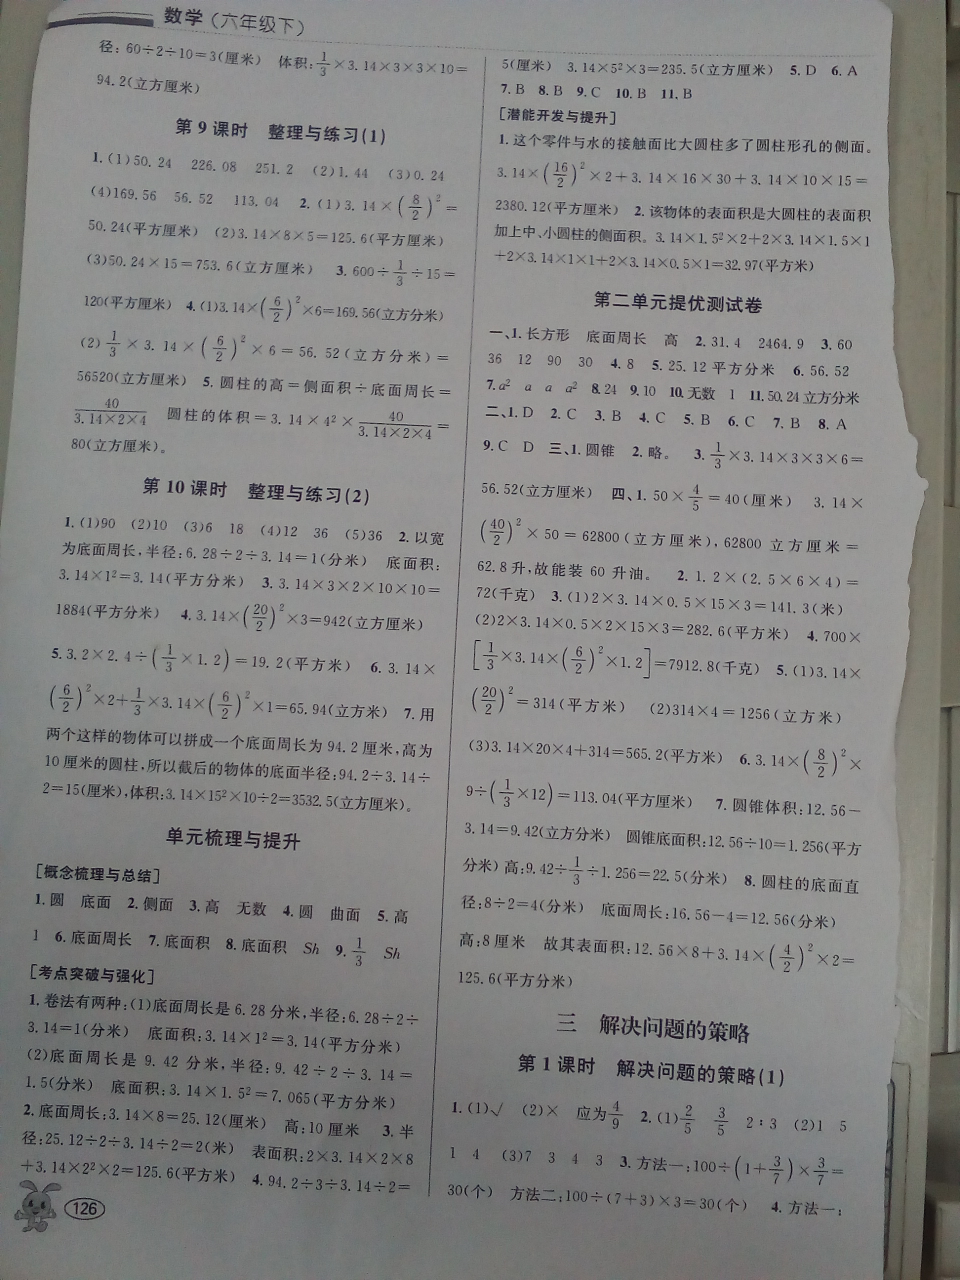 数学(六年级下)
径:60÷2÷10=3(厘米) 体积:1/3×3.14×3×3×10=
94.2(立方厘米)
第9课时 整理与练习(1)
1.(1)50.24 226.08 251.2 (2)1.44 (3)0.24
(4)169.56 56.52 113.04 2.(1)3.14×(8/2)²=
50.24(平方厘米) (2)3.14×8×5=125.6(平方厘米)
(3)50.24×15=753.6(立方厘米) 3.600÷1/3÷15=
120(平方厘米) 4.(1)3.14×(6/2)²×6=169.56(立方分米)
(2)1/3×3.14×(6/2)²×6=56.52(立方分米)=
56520(立方厘米) 5.圆柱的高=侧面积÷底面周长=
40/3.14×2×4 圆柱的体积=3.14×4²×40/3.14×2×4=
80(立方厘米)。
第10课时 整理与练习(2)
1.(1)90 (2)10 (3)6 18 (4)12 36 (5)36 2.以宽
为底面周长,半径:6.28÷2÷3.14=1(分米) 底面积:
3.14×1²=3.14(平方分米) 3.3.14×3×2×10×10=
1884(平方分米) 4.3.14×(20/2)²×3=942(立方厘米)
5.3.2×2.4÷(1/3×1.2)=19.2(平方米) 6.3.14×
(6/2)²×2+1/3×3.14×(6/2)²×1=65.94(立方米) 7.用
两个这样的物体可以拼成一个底面周长为94.2厘米,高为
10厘米的圆柱,所以截后的物体的底面半径:94.2÷3.14÷
2=15(厘米),体积:3.14×15²×10÷2=3532.5(立方厘米)。
单元梳理与提升
[概念梳理与总结]
1.圆 底面 2.侧面 3.高 无数 4.圆 曲面 5.高
1 6.底面周长 7.底面积 8.底面积 Sh 9.1/3 Sh
[考点突破与强化]
1.卷法有两种:(1)底面周长是6.28分米,半径:6.28÷2÷
3.14=1(分米) 底面积:3.14×1²=3.14(平方分米)
(2)底面周长是9.42分米,半径:9.42÷2÷3.14=
1.5(分米) 底面积:3.14×1.5²=7.065(平方分米)
2.底面周长:3.14×8=25.12(厘米) 高:10厘米 3.半
径:25.12÷2÷3.14÷2=2(米) 表面积:2×3.14×2×8
+3.14×2²×2=125.6(平方米) 4.94.2÷3÷3.14÷2=
126
5(厘米) 3.14×5²×3=235.5(立方厘米) 5.D 6.A
7.B 8.B 9.C 10.B 11.B
[潜能开发与提升]
1.这个零件与水的接触面比大圆柱多了圆柱形孔的侧面。
3.14×(16/2)²×2+3.14×16×30+3.14×10×15=
2380.12(平方厘米) 2.该物体的表面积是大圆柱的表面积
加上中、小圆柱的侧面积。3.14×1.5²×2+2×3.14×1.5×1
+2×3.14×1×1+2×3.14×0.5×1=32.97(平方米)
第二单元提优测试卷
一、1.长方形 底面周长 高 2.31.4 2464.9 3.60
36 12 90 30 4.8 5.25.12平方分米 6.56.52
7.a² a a a² 8.24 9.10 10.无数 1 11.50.24立方分米
二、1.D 2.C 3.B 4.C 5.B 6.C 7.B 8.A
9.C D 三、1.圆锥 2.略。 3.1/3×3.14×3×3×6=
56.52(立方厘米) 四、1.50×4/5=40(厘米) 3.14×
(40/2)²×50=62800(立方厘米),62800立方厘米=
62.8升,故能装60升油。 2.1.2×(2.5×6×4)=
72(千克) 3.(1)2×3.14×0.5×15×3=141.3(米)
(2)2×3.14×0.5×2×15×3=282.6(平方米) 4.700×
[1/3×3.14×(6/2)²×1.2]=7912.8(千克) 5.(1)3.14×
(20/2)²=314(平方米) (2)314×4=1256(立方米)
(3)3.14×20×4+314=565.2(平方米) 6.3.14×(8/2)²×
9÷(1/3×12)=113.04(平方厘米) 7.圆锥体积:12.56-
3.14=9.42(立方分米) 圆锥底面积:12.56÷10=1.256(平方
分米)高:9.42÷1/3÷1.256=22.5(分米) 8.圆柱的底面直
径:8÷2=4(分米) 底面周长:16.56-4=12.56(分米)
高:8厘米 故其表面积:12.56×8+3.14×(4/2)²×2=
125.6(平方分米)
三 解决问题的策略
第1课时 解决问题的策略(1)
1.(1)√ (2)× 应为4/9 2.(1)2/5 3/5 2:3 (2)1 5
1 4 (3)7 3 4 3 3.方法一:100÷(1+3/7)×3/7=
30(个) 方法二:100÷(7+3)×3=30(个) 4.方法一: